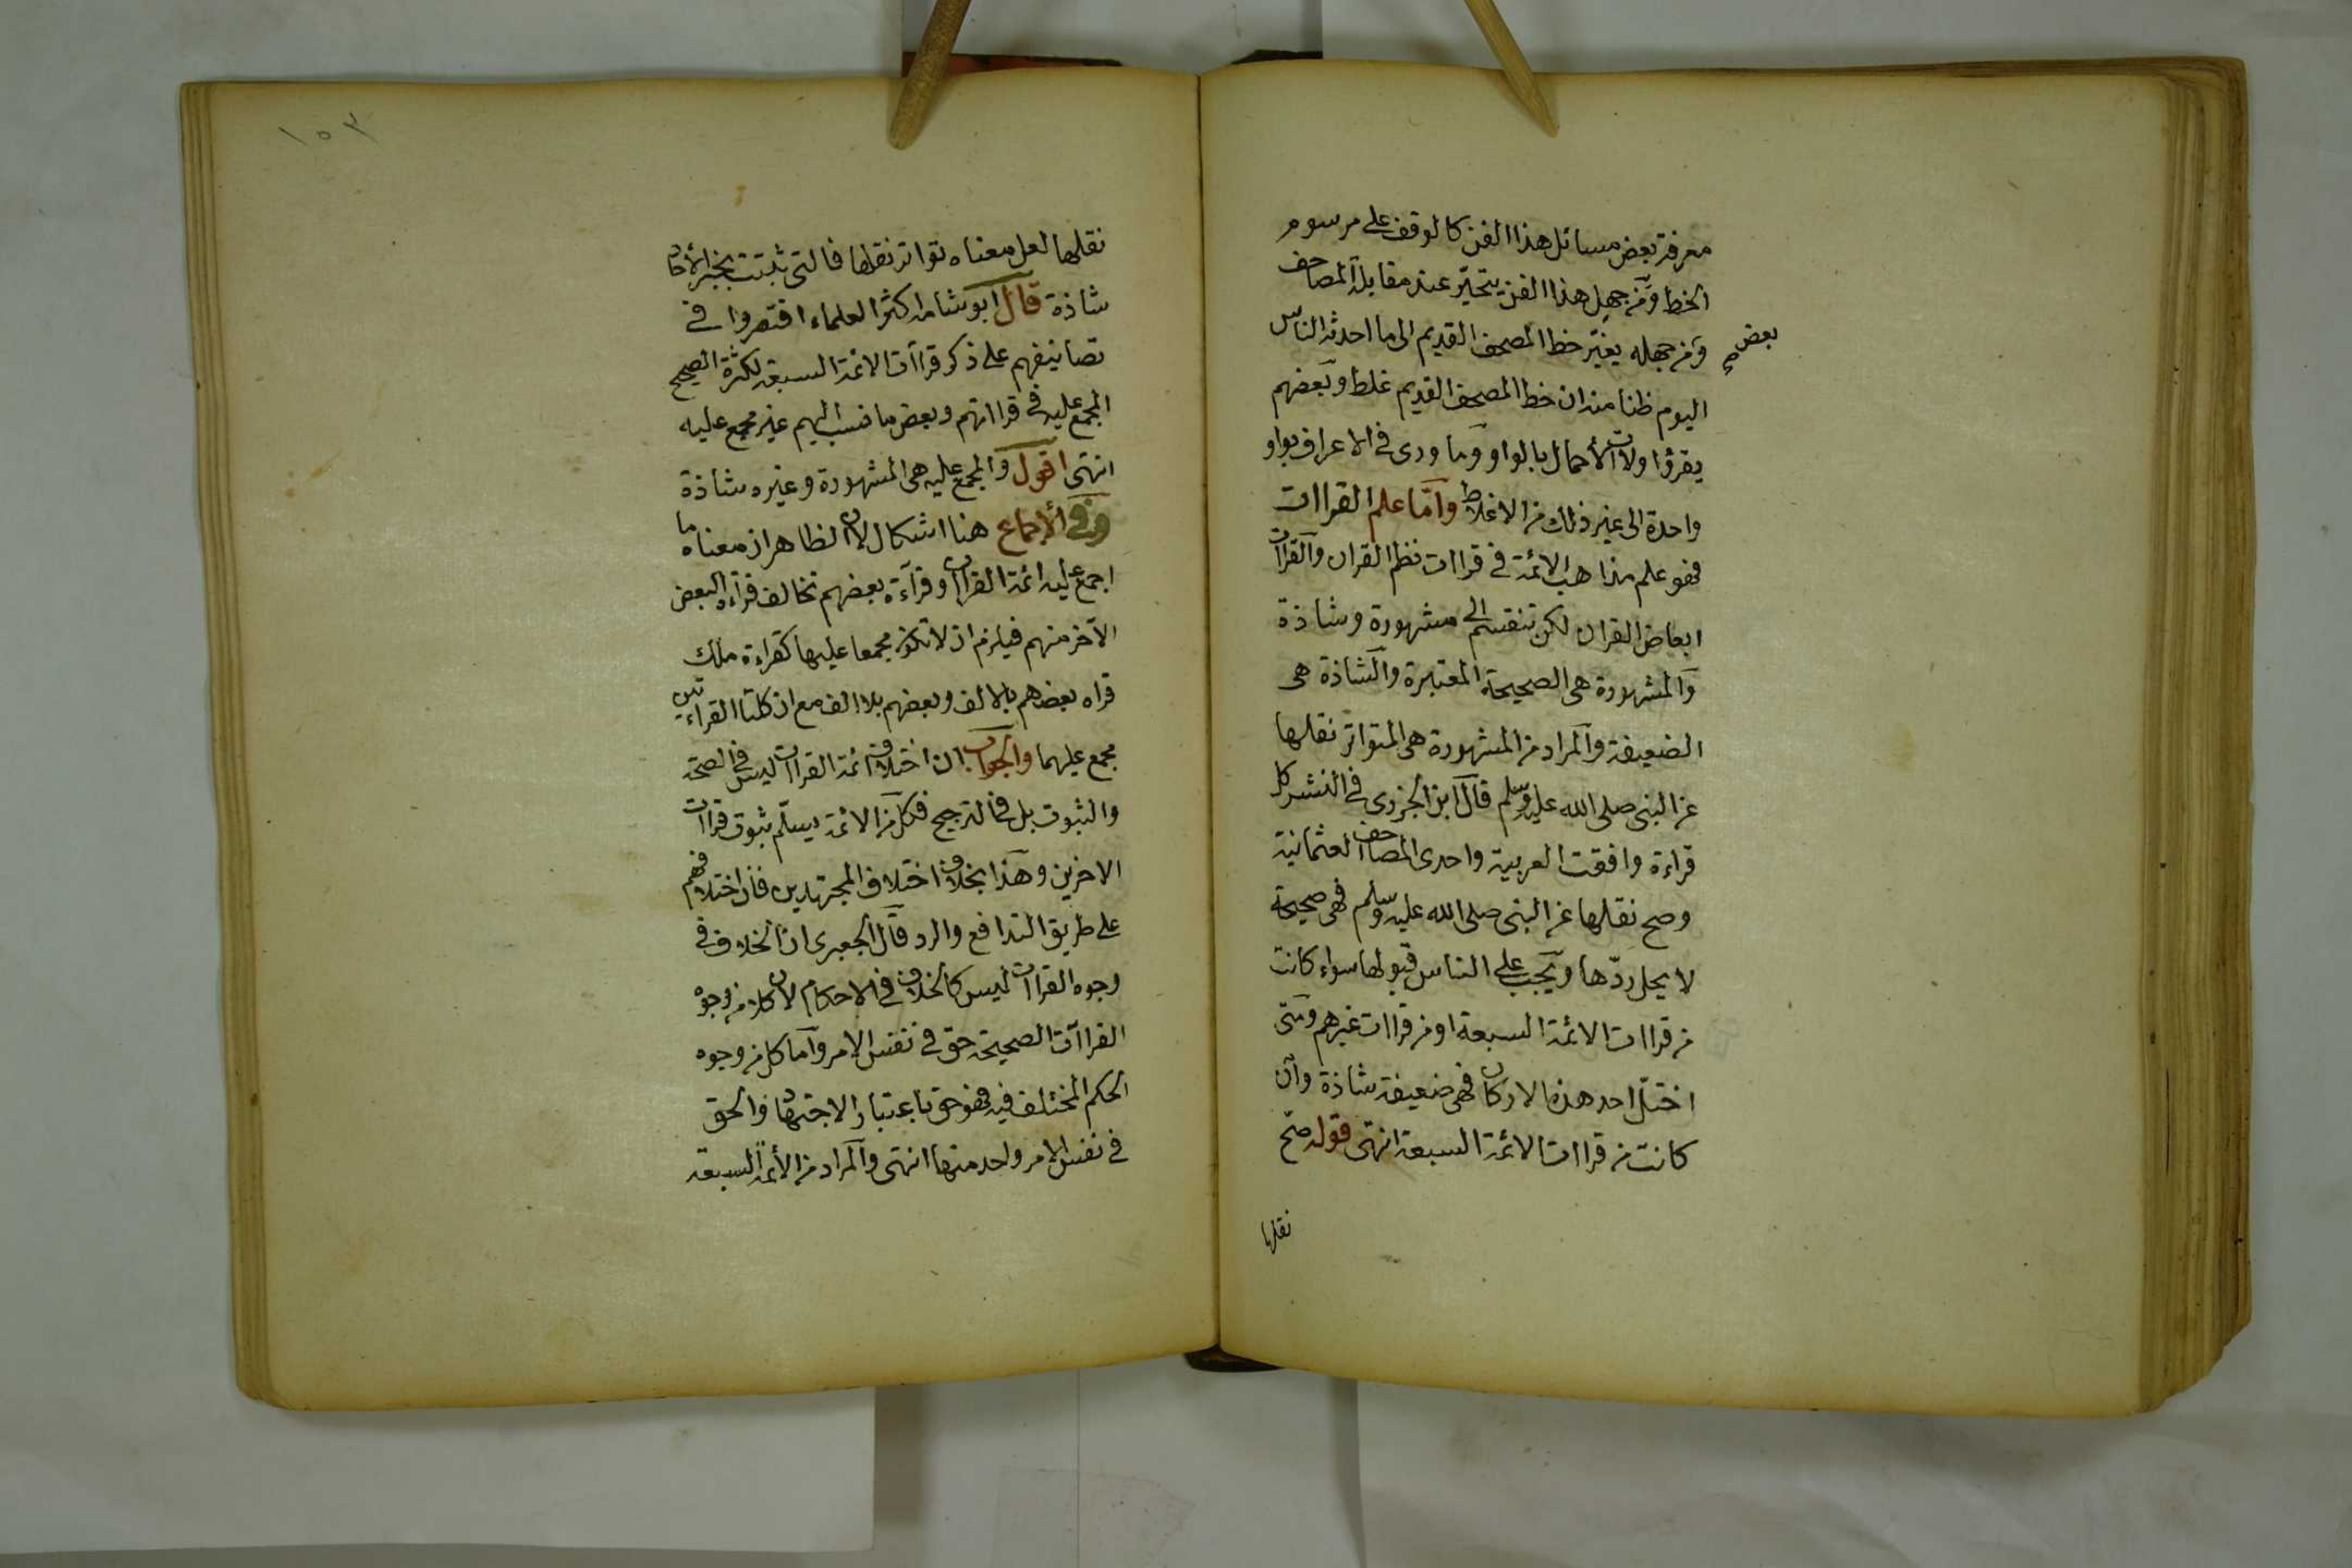 معرفة بعض مسائل هذا الفن كالوقف على مرسوم
الخط ومن جهل هذا الفن يتحيّر عند مقابلة المصاحف
بعض
ومن جهله يغيّر خط المصحف القديم الى ما احدثه الناس
اليوم ظنا منه ان خط المصحف القديم غلط وبعضهم
يقرؤا ولات الأحمال بالواو وما ورى في الاعراف بواو
واحدة الى غير ذلك من الاغلاط وأمّا علم القراات
فهو علم مذاهب الائمة في قراات نظم القران والقراآت
ابعاض القران لكن تنقسم الى مشهورة وشاذة
والمشهورة هي الصحيحة المعتبرة والشاذة هي
الضعيفة والمراد من المشهورة هي المتواتر نقلها
عن النبى صلى الله عليه وسلم قال ابن الجزرى في النشر كل
قراءة وافقت العربية واحدى المصاحف العثمانية
وصح نقلها عن النبى صلى الله عليه وسلم فهي صحيحة
لا يحل ردّها ويجب على الناس قبولها سواء كانت
من قراات الائمة السبعة او من قراات غيرهم ومتى
اختلّ احد هذه الاركان فهي ضعيفة شاذة وان
كانت من قراات الائمة السبعة انتهى قوله صح
نقلها
١٥٣
نقلها لعل معناه تواتر نقلها فالتي ثبتت بخبر الأحاد
شاذة قال ابو شامة اكثر العلماء اقتصروا في
تصانيفهم على ذكر قراآت الائمة السبعة لكثرة الصحيح
المجمع عليه في قرااتهم وبعض ما نسب اليهم غير مجمع عليه
انتهى اقول والمجمع عليه هي المشهورة وغيره شاذة
وفى الأجماع هنا اشكال لان الظاهر ان معناه ما
اجمع عليه ائمة القراآت وقرآءة بعضهم تخالف قرآءة البعض
الآخر منهم فيلزم ان لا تكون مجمعا عليها كقراءة ملك
قراه بعضهم بالالف وبعضهم بلا الف مع ان كلتا القراءتين
مجمع عليهما والجواب ان اختلاف ائمة القراآت ليس في الصحة
والثبوت بل في الترجيح فكل من الائمة يسلّم ثبوت قراآت
الاخرين وهذا بخلاف اختلاف المجتهدين فان اختلافهم
على طريق التدافع والرد قال الجعبرى ان الخلاف في
وجوه القراآت ليس كالخلاف في الاحكام لان كلا من وجوه
القراآت الصحيحة حق في نفس الامر وأما كل من وجوه
الحكم المختلف فيه فهو حق باعتبار الاجتهاد والحق
في نفس الامر واحد منها انتهى والمراد من الأئمة السبعة